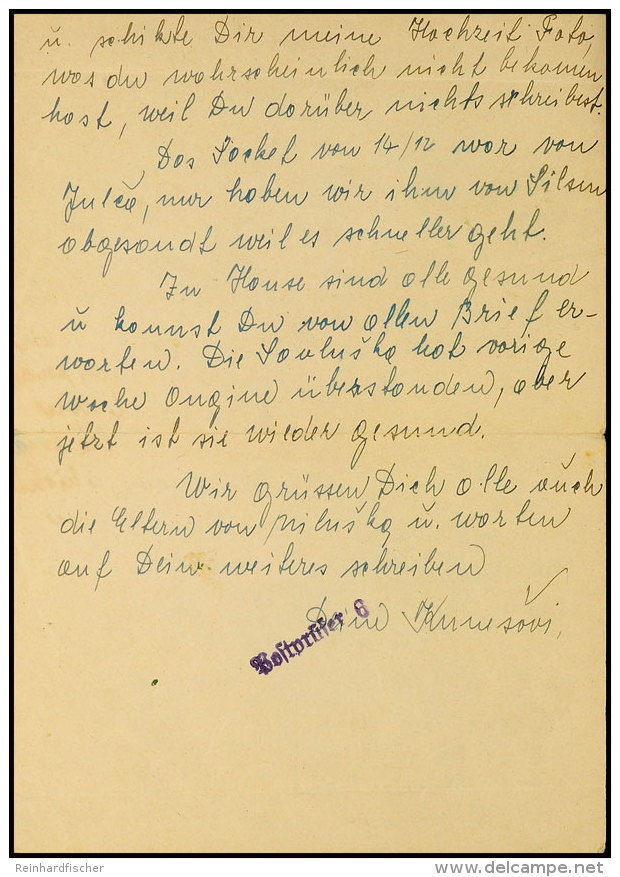 u. schikte Dir meine Hochzeit Foto,
was du wahrscheinlich nicht bekomen
hast, weil Du darüber nichts schreibest.
Das Packet von 14/12 war von
Julča, nur haben wir ihm von Pilsen
abgesandt weil es schneller geht.
In Hause sind alle gesund
u kannst Du von allen Brief er-
warten. Die Savluška hat vorige
woche Angine überstanden, aber
jetzt ist sie wieder gesund.
Wir grüssen Dich alle auch
die Eltern von Miluška u. warten
auf Dein weiteres schreiben
Deine Kunešovi,
Postprüfer 6
Reinhardfischer
delcampe.net